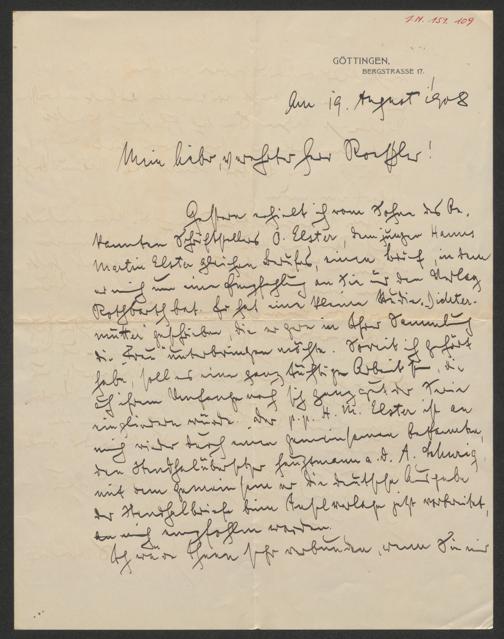 I.N. 151.109
GÖTTINGEN,
BERGSTRASSE 17.
Am 19. August 1908
Mein lieber, verehrter Herr Roessler!
Gestern erhielt ich vom Sohne des be-
kannten Schriftstellers O. Elster, dem jungen Hanns
Martin Elster gleichen Berufs, einen Brief, in dem
er mich um eine Empfehlung an Sie und den Verlag
bat. Er hat eine kleine Studie „Dichter-
mütter" geschrieben, die er gern in Ihrer Sammlung
die „Frau" unterbringen möchte. Soweit ich gehört
habe, soll es eine ganz tüchtige Arbeit sein, die
auch ihrem Umfange nach sich ganz gut der Serie
eingliedern würde. Der p.p. H. M. Elster ist an
mich wieder durch einen gemeinsamen Bekannten,
den Stendhalübersetzer Hauptmann a. D. A. Schurig,
mit dem gemeinsam er die deutsche Ausgabe
der Stendhalbriefe beim Inselverlage jetzt vorbereitet,
an mich empfohlen worden.
Ich wäre Ihnen sehr verbunden, wenn Sie mir